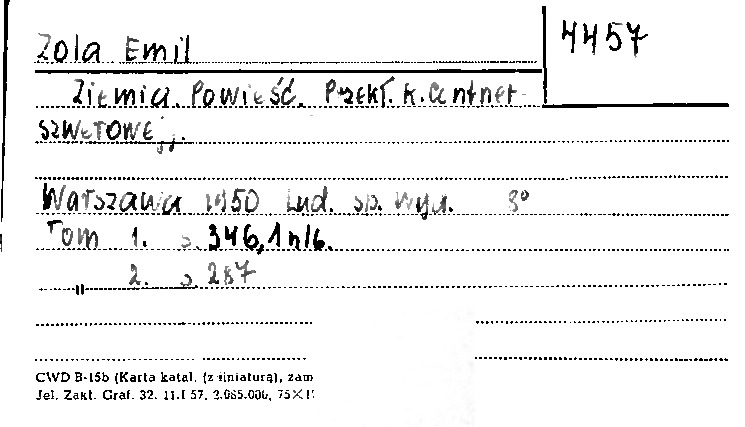 Zola Emil
4457
Ziemia. Powieść. Przekł. K. Centner
szwerowej.
Warszawa 1950 Lud. sp. wyd. 8°
Tom 1. s. 346, 1 nlb.
" 2. s. 287
CWD B-15b (Karta katal. (z liniaturą), zam
Jel. Zakł. Graf. 32. 11.I 57. 2.085.000, 75×1